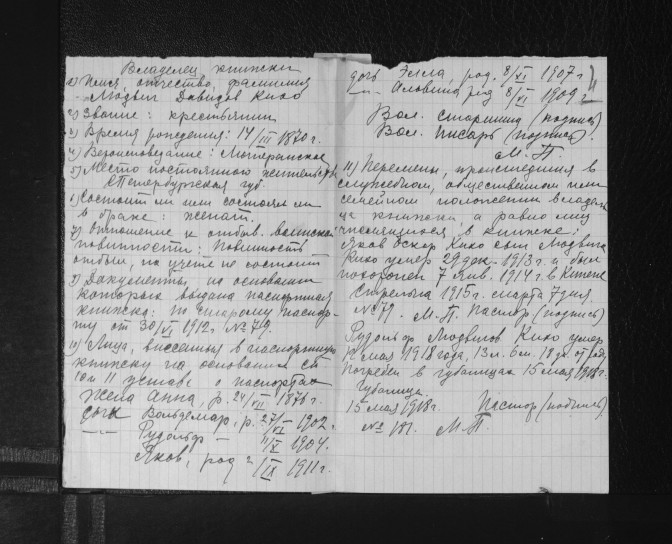 Владелец книжки
1) Имя, отчество, фамилия
- Людвиг Давидов Кико
2) Звание: крестьянин
3) Время рождения: 14/III 1870 г.
4) Вероисповедание: Лютеранское
5) Место постоянного жительства
С Петербургская губ.
6) Состоит ли или состоял ли
в браке: женат.
7) Отношение к отбыв. воинской
повинности: Повинность
отбыл, на учете не состоит
8) Документы, на основании
которых выдана паспортная
книжка: по старому паспор-
ту от 30/VI 1912 г. № 79.
10) Лица, внесенныя в паспортную
книжку на основании ст
11 устава о паспортах
Жена Анна, р. 24/VII 1876 г.
сын Вольдемар, р. 27/VI 1902.
—„— Рудольф — 11/X 1904.
Яков, род 2/IX 1911 г.
дочь Элла, род. 8/XI 1907 г
—„— род 8/VI 1909 г
Вол. старшина (подпись)
Вол. писарь (подпись).
М. П.
11) Перемены, происшедшия в
служебном, общественном или
семейном положении владель
ца книжки, а равно лиц
числящихся в книжке:
Яков Оскар Кико сын Людвига
Кико умер 29 дек. 1913 г. и был
похоронен 7 янв. 1914 г. в
Стрельна 1915 г. марта 7 дня.
№ 79. М. П. Пастор (подпись)
Рудольф Людвигов Кико умер
мая 1918 года, 13 л. 6 м. 18 дн. от роду
Погребен в Губаницах 15 мая 1918 г.
Губаница.
15 мая 1918 г. Пастор (подпись)
№ 181. М. П.